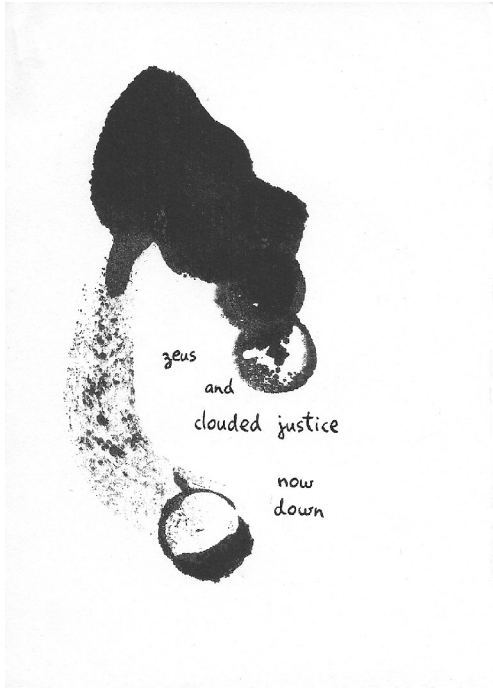 zeus
and
clouded justice
now
down